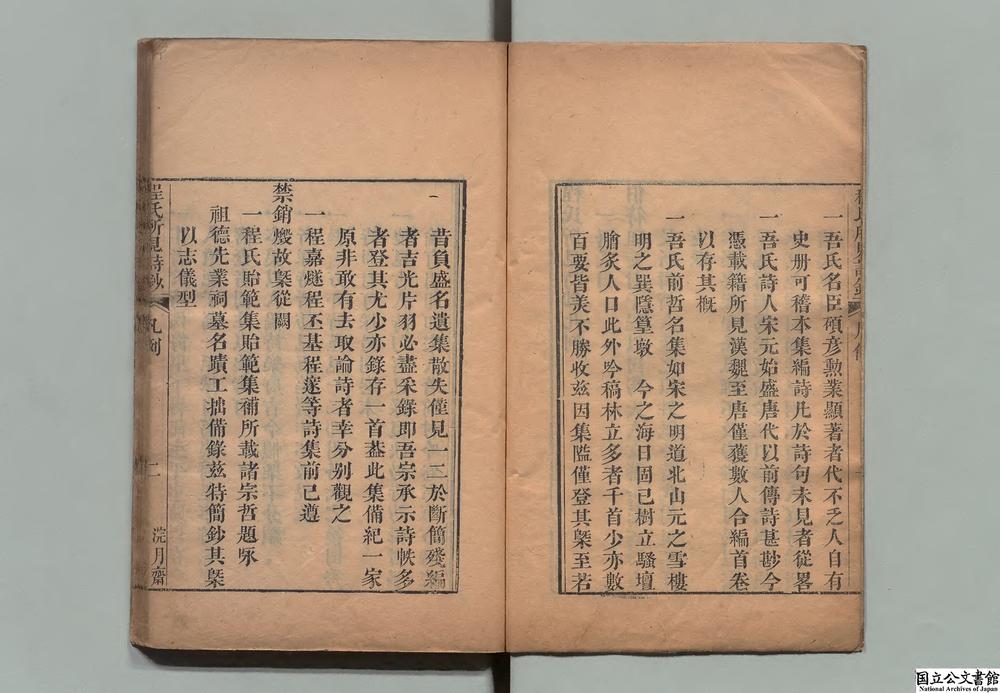 一吾氏名臣碩彥勲業顯著者代不乏人自有
史册可稽本集編詩凡於詩句未見者從畧
一吾氏詩人宋元始盛唐代以前傳詩甚尠今
憑載籍所見漢魏至唐僅獲數人合編首卷
以存其概
一吾氏前哲名集如宋之明道北山元之雪樓
明之巽隱篁墩 今之海日固已樹立騷壇
膾炙人口此外吟稿林立多者千首少亦數
百要皆美不勝收兹因集隘僅登其槩至若
昔負盛名遺集散失僅見一二於斷簡殘編
者吉光片羽必盡采錄即吾宗承示詩帙多
者登其尤少亦錄存一首葢此集備紀一家
原非敢有去取論詩者幸分别觀之
一程嘉燧程丕基程𨗉等詩集前已遵
禁銷燬故槩從闕
一程氏貽範集貽範集補所載諸宗哲題咏
祖德先業祠墓名蹟工拙備錄兹特簡鈔其槩
以志儀型
程氏所見詩鈔 凡例 二 浣月齋
国立公文書館
National Archives of Japan